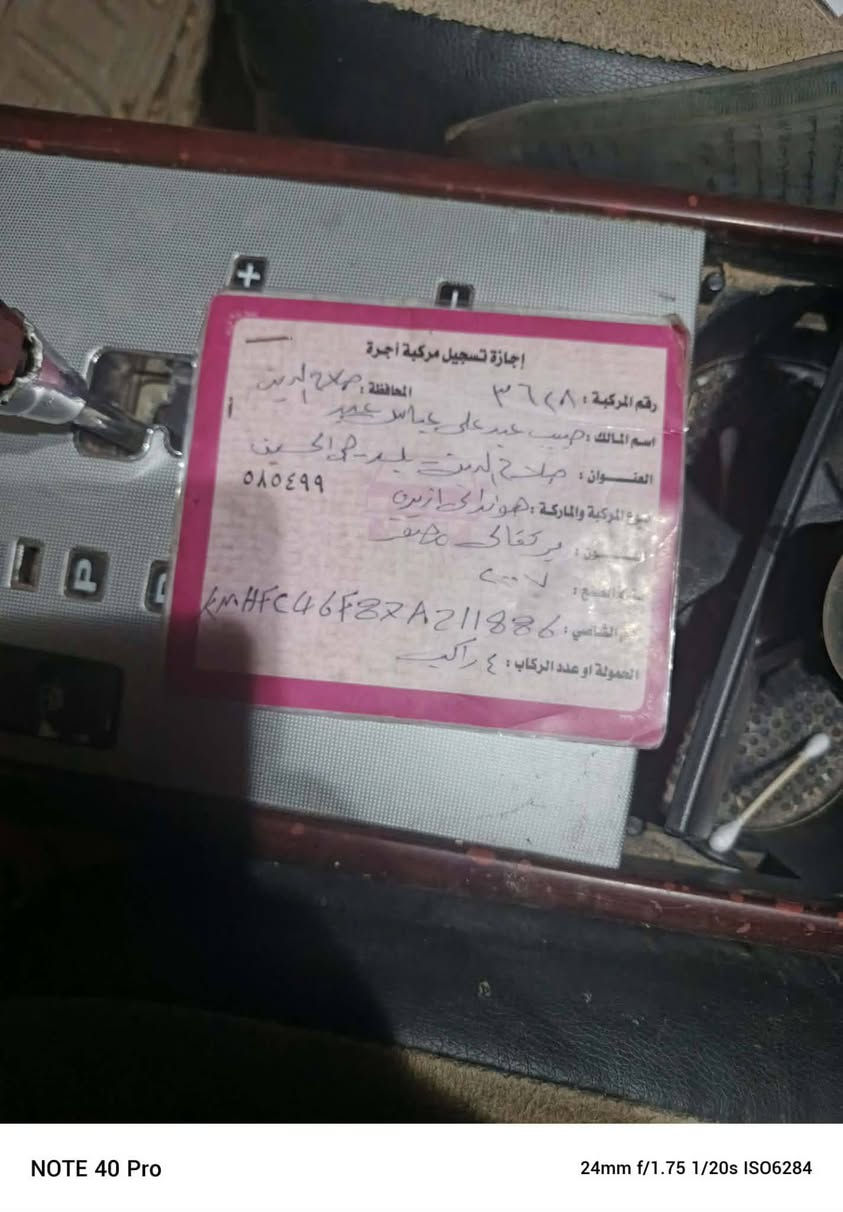 إجازة تسجيل مركبة أجرة
رقم المركبة : ٣٦٢٨ المحافظة : صلاح الدين
أ
اسم المالك : حبيب عبد علي عباس عبد
العنــــوان : صلاح الدين بلد حي الحسين
نوع المركبة والماركة : هونداي ازيرا ٥٨٥٤٩٩
اللـــون : برتقالي
سنة الصنع : ٢٠٠٧
رقم الشاصي : KMHFC46F87A211886
الحمولة او عدد الركاب : ٤ راكب
+
-
P
NOTE 40 Pro
24mm f/1.75 1/20s ISO6284